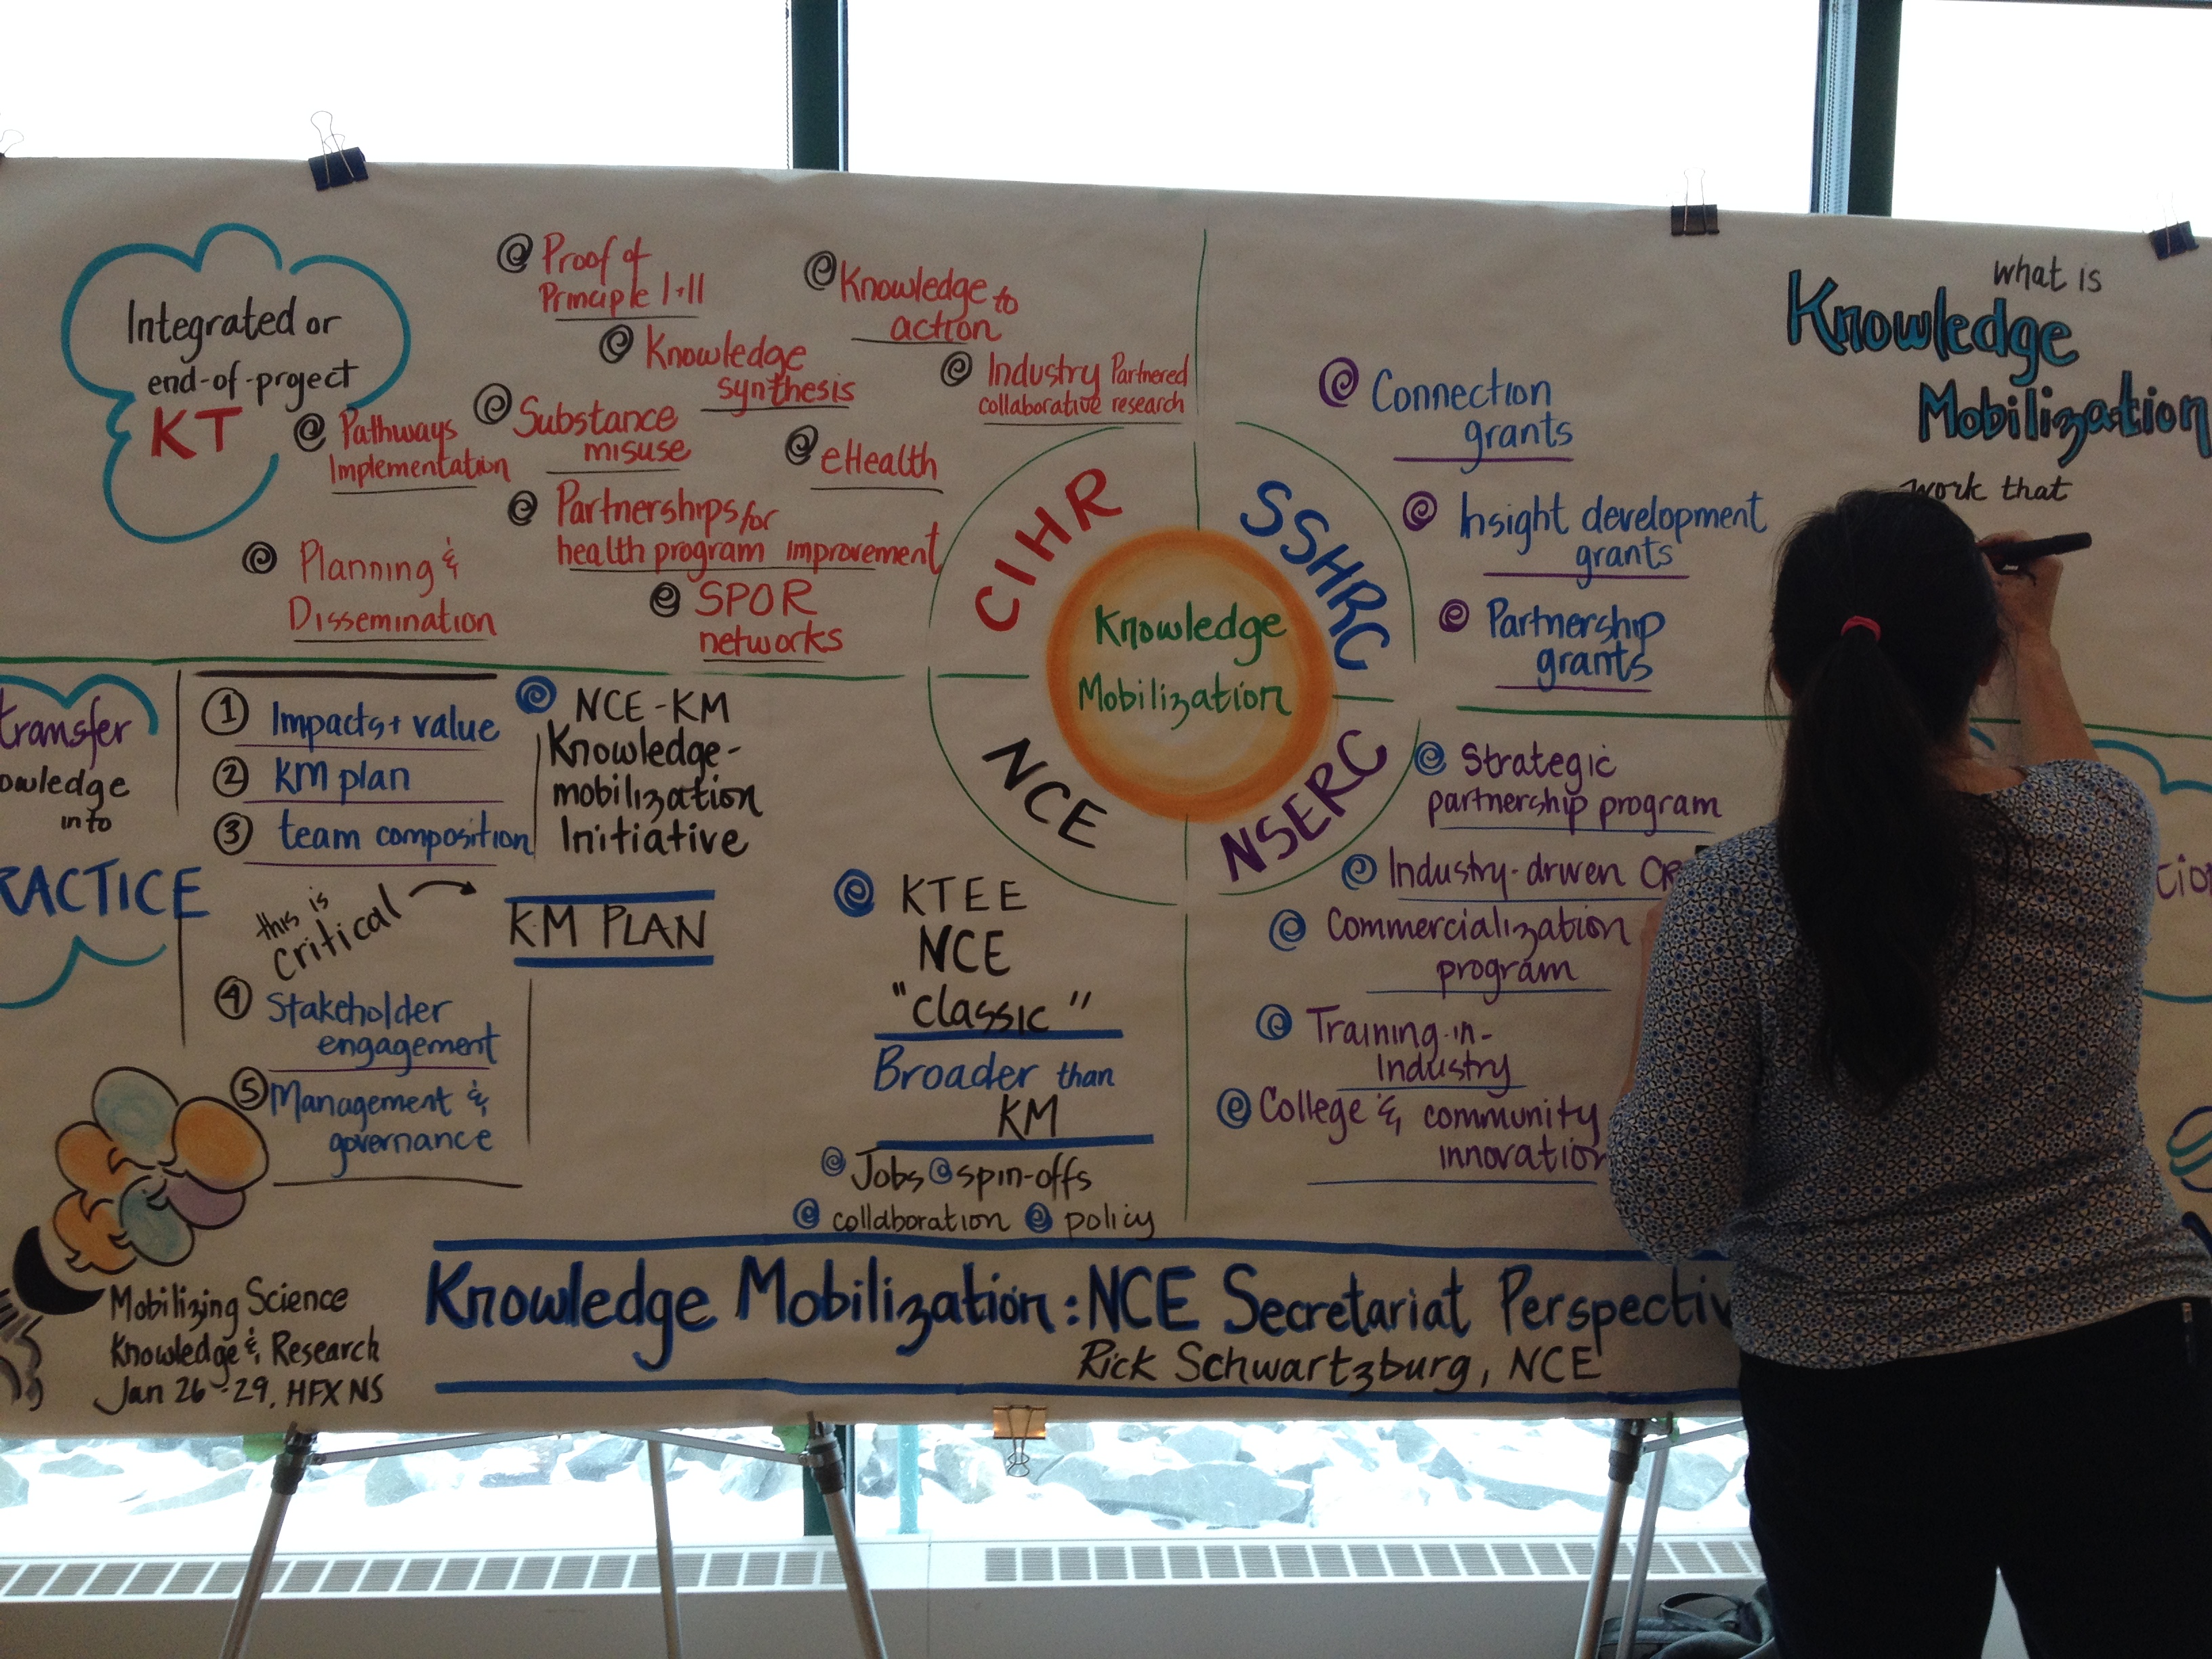 Integrated or
end-of-project
KT
Proof of
Principle I+II
Knowledge to
action
Knowledge
synthesis
Industry Partnered
collaborative research
Pathways
Implementation
Substance
misuse
eHealth
Partnerships for
health program improvement
Planning &
Dissemination
SPOR
networks
CIHR
SSHRC
NCE
NSERC
Knowledge
Mobilization
Connection
grants
Insight development
grants
Partnership
grants
what is
Knowledge
Mobilization
work that
transfer
owledge
into
RACTICE
1 Impacts + value
2 KM plan
3 team composition
this is
critical
4 Stakeholder
engagement
5 Management &
governance
NCE-KM
Knowledge-
mobilization
Initiative
KM PLAN
KTEE
NCE
"classic"
Broader than
KM
Jobs spin-offs
collaboration policy
Strategic
partnership program
Industry-driven
Commercialization
program
Training-in-
Industry
College & community
innovation
Mobilizing Science
Knowledge & Research
Jan 26-29, HFX NS
Knowledge Mobilization: NCE Secretariat Perspectiv
Rick Schwartzburg, NCE